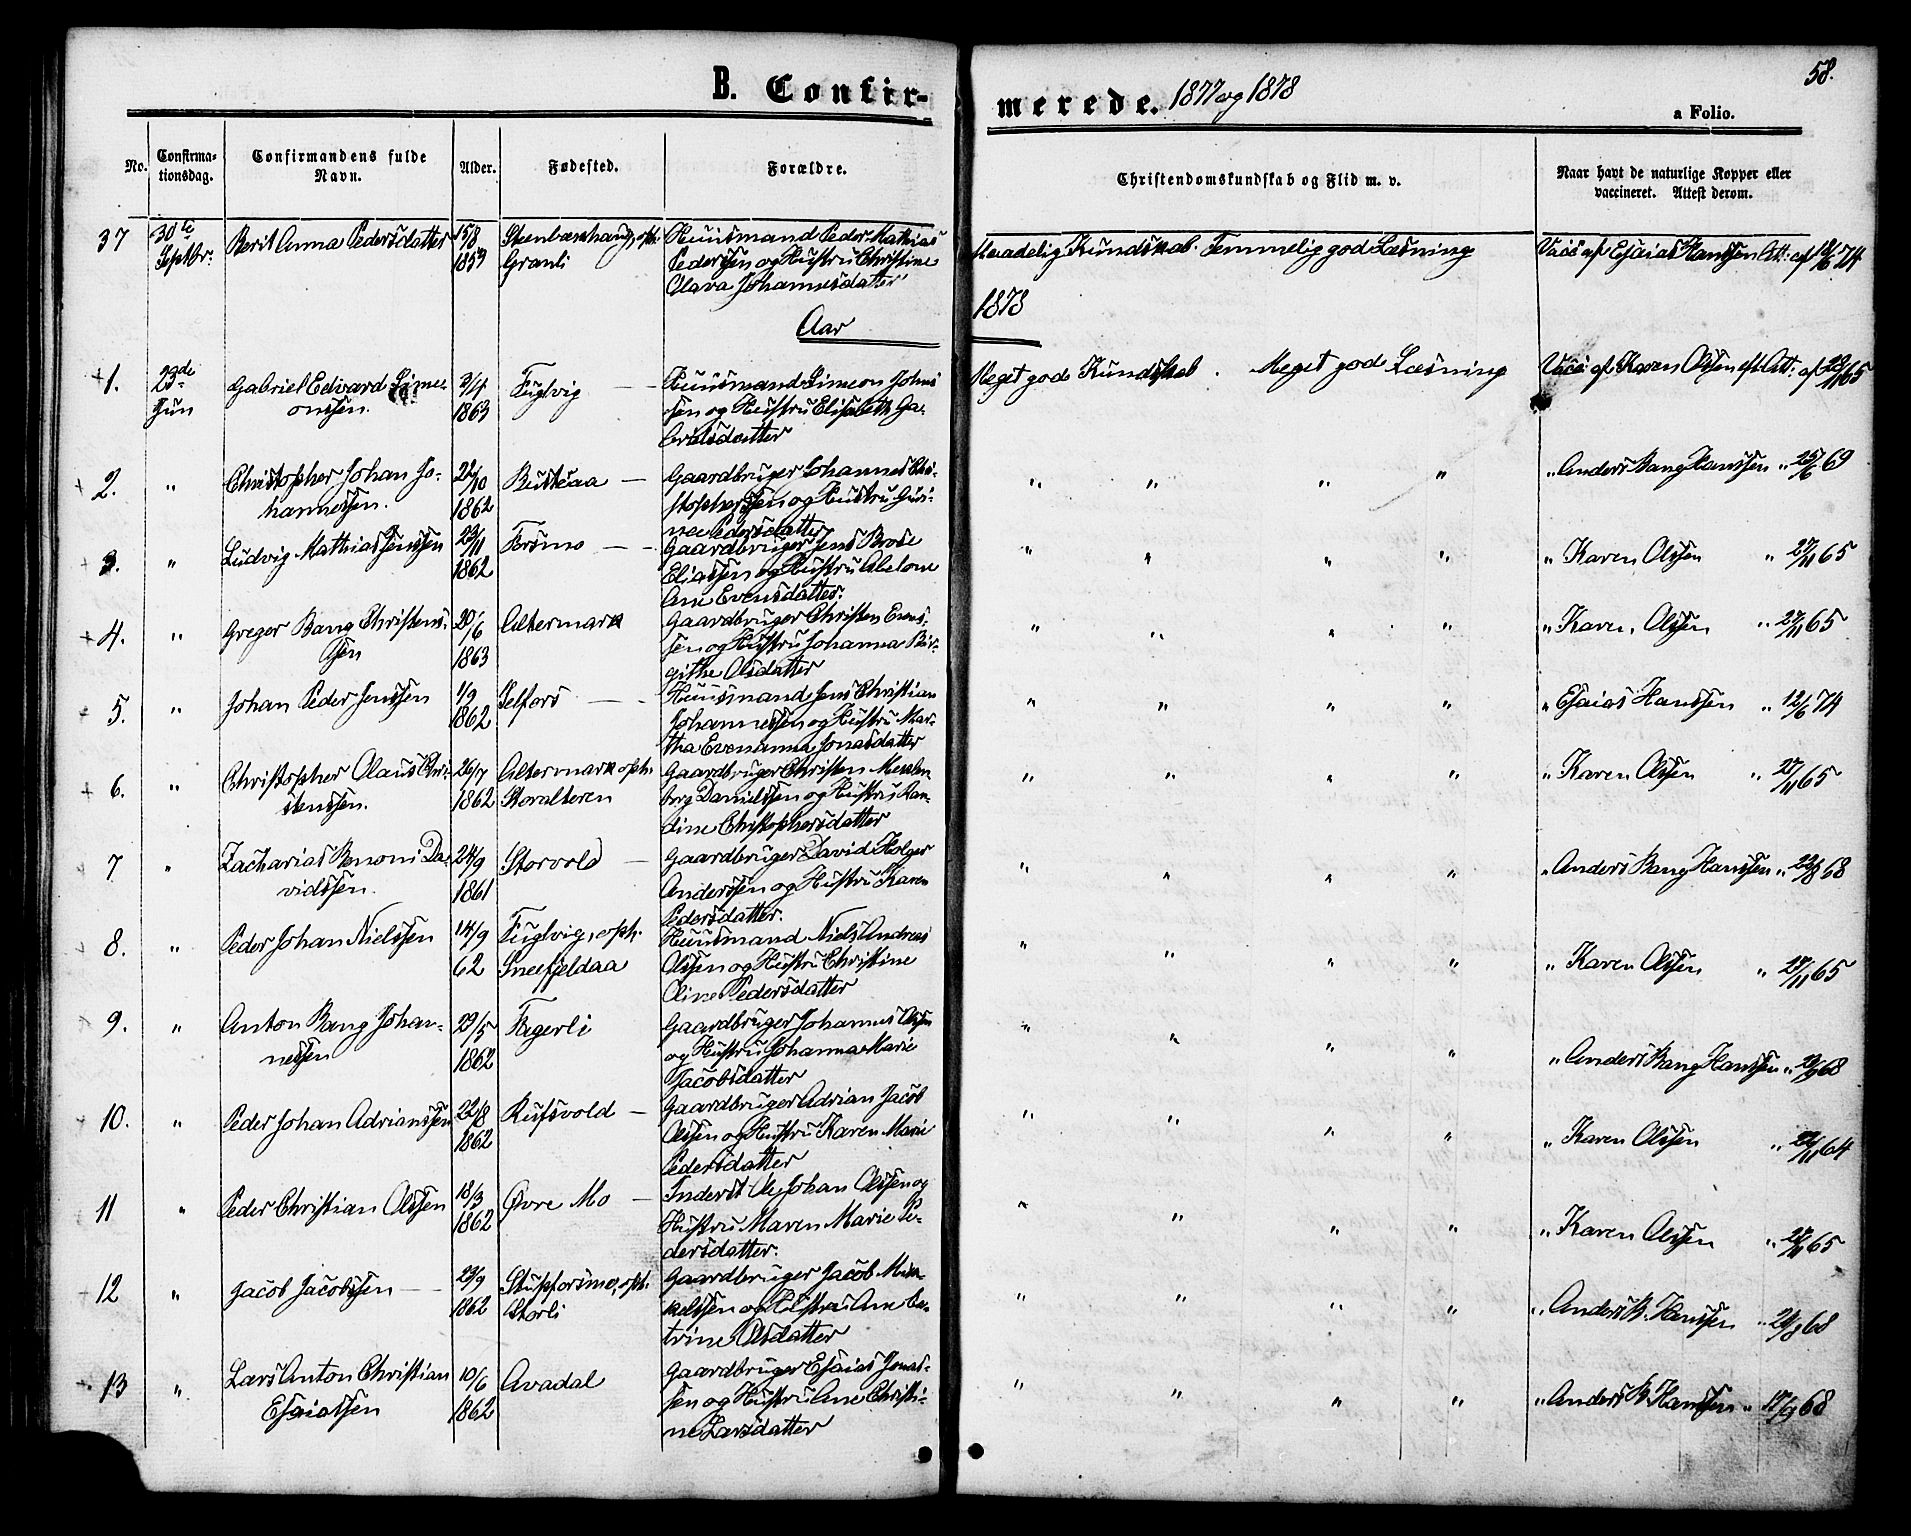 58.
B. Confir-
merede. 1877 og 1878
a Folio.
No.
Confirma-
tionsdag.
Confirmandens fulde
Navn.
Alder.
Fødested.
Forældre.
Christendomskundskab og Flid m. v.
Naar havt de naturlige Kopper eller
vaccineret. Attest derom.
37 30te Septbr. Berit Anna Pedersdatter 15/8 1859
Granli
Huusmand Peder Mathias
Pederssen og Hustru Christine
Olava Johannesdatter
Maadelig Kundskab. Temmelig god Læsning
Vacc. af Esaias Hanssen Att: af 12/6 74
Aar 1878
1. 23de Jun Gabriel Edvard Sime-
onssen.
3/4 1863
Fuglvig
Huusmand Simeon Johns-
sen og Hustru Elisabeth Ga-
brielsdatter
Meget god Kundskab. Meget god Læsning
Vacc: af Karen Olssen Att: af 65
2. " Christopher Johan Jo-
hannessen.
22/10 1862
Gaardbruger Johannes Chri-
stopherssen og Hustru
Pedersdatter
" " " "
" Anders Bang Hanssen " 25/6 69
3. " Ludvig Mathias Jenssen
23/11 1862
Forsmo
Gaardbruger Jens Brose
Eliassen og Hustru Abelone
Ane Evensdatter.
" " " "
" Karen Olssen " 27/11 65
4. " Greger Bang Christens-
sen
20/6 1863
Altermark
Gaardbruger Christen Evens-
sen og Hustru Johanna Bir-
githe Olsdatter
" " " "
" Karen Olssen " 27/11 65
5. " Johan Peder Jenssen
1/9 1862
Selfors
Huusmand Jens Christian
Johannessen og Hustru Mar-
tha Evenanna Jonasdatter
" " " "
" Esaias Hanssen " 12/6 74
6. " Christopher Olaus Chri-
stenssen.
26/7 1862
Altermark oph.
Storalteren
Gaardbruger Christen Meslen-
borg Danielssen og Hustru Ran-
dine Christophersdatter
" " " "
" Karen Olssen " 27/11 65
7 " Zacharias Benoni Da-
vidssen.
24/9 1861
Storvold
Gaardbruger David Holger
Anderssen og Hustru Karen
Pedersdatter.
" " " "
" Anders Bang Hanssen " 22/8 68
8. " Peder Johan Nielssen
14/9 62
Fuglvig, oph.
Sneefjeldaa
Huusmand Niels Andreas
Olssen og Hustru Christine
Oline Pedersdatter
" " " "
" Karen Olssen " 27/11 65
9. " Anton Bang Johan-
nessen
29/5 1862
Fagerli
Gaardbruger Johannes Olssen
og Hustru Johanna Marie
Jacobsdatter
" " " "
" Anders Bang Hanssen " 68
10. " Peder Johan Adrianssen
22/8 1862
Rufsvold
Gaardbruger Adrian Jacob
Olssen og Hustru Karen Marie
Pedersdatter
" " " "
" Karen Olssen " 64
11 " Peder Christian Olssen
18/3 1862
Øvre Mo
Inderst Ole Johan Olssen og
Hustru Maren Marie Pe-
dersdatter.
" " " "
" Karen Olssen " 65
12 " Jacob Jacobssen
23/9 1862
Stupforsmo, oph.
Storli
Gaardbruger Jacob Mik-
kelssen og Hustru Ane Ca-
trine Olsdatter
" " " "
" Anders B. Hanssen " 68
13 " Lars Anton Christian
Esaiassen
10/6 1862
Avadal
Gaardbruger Esaias Jonas-
sen og Hustru Ane Christi-
ne Larsdatter
" " " "
" Anders B. Hanssen " 17/9 68